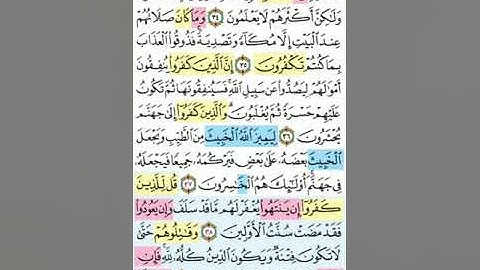 وَلَٰكِنَّ أَكْثَرَهُمْ لَا يَعْلَمُونَ ٣٤ وَمَا كَانَ صَلَاتُهُمْ
عِندَ الْبَيْتِ إِلَّا مُكَاءً وَتَصْدِيَةً فَذُوقُوا الْعَذَابَ
بِمَا كُنتُمْ تَكْفُرُونَ ٣٥ إِنَّ الَّذِينَ كَفَرُوا يُنفِقُونَ
أَمْوَالَهُمْ لِيَصُدُّوا عَن سَبِيلِ اللَّهِ فَسَيُنفِقُونَهَا ثُمَّ تَكُونُ
عَلَيْهِمْ حَسْرَةً ثُمَّ يُغْلَبُونَ وَالَّذِينَ كَفَرُوا إِلَىٰ جَهَنَّمَ
يُحْشَرُونَ ٣٦ لِيَمِيزَ اللَّهُ الْخَبِيثَ مِنَ الطَّيِّبِ وَيَجْعَلَ
الْخَبِيثَ بَعْضَهُ عَلَىٰ بَعْضٍ فَيَرْكُمَهُ جَمِيعًا فَيَجْعَلَهُ
فِي جَهَنَّمَ أُولَٰئِكَ هُمُ الْخَاسِرُونَ ٣٧ قُل لِّلَّذِينَ
كَفَرُوا إِن يَنتَهُوا يُغْفَرْ لَهُم مَّا قَدْ سَلَفَ وَإِن يَعُودُوا
فَقَدْ مَضَتْ سُنَّتُ الْأَوَّلِينَ ٣٨ وَقَاتِلُوهُمْ حَتَّىٰ
لَا تَكُونَ فِتْنَةٌ وَيَكُونَ الدِّينُ كُلُّهُ لِلَّهِ فَإِنِ